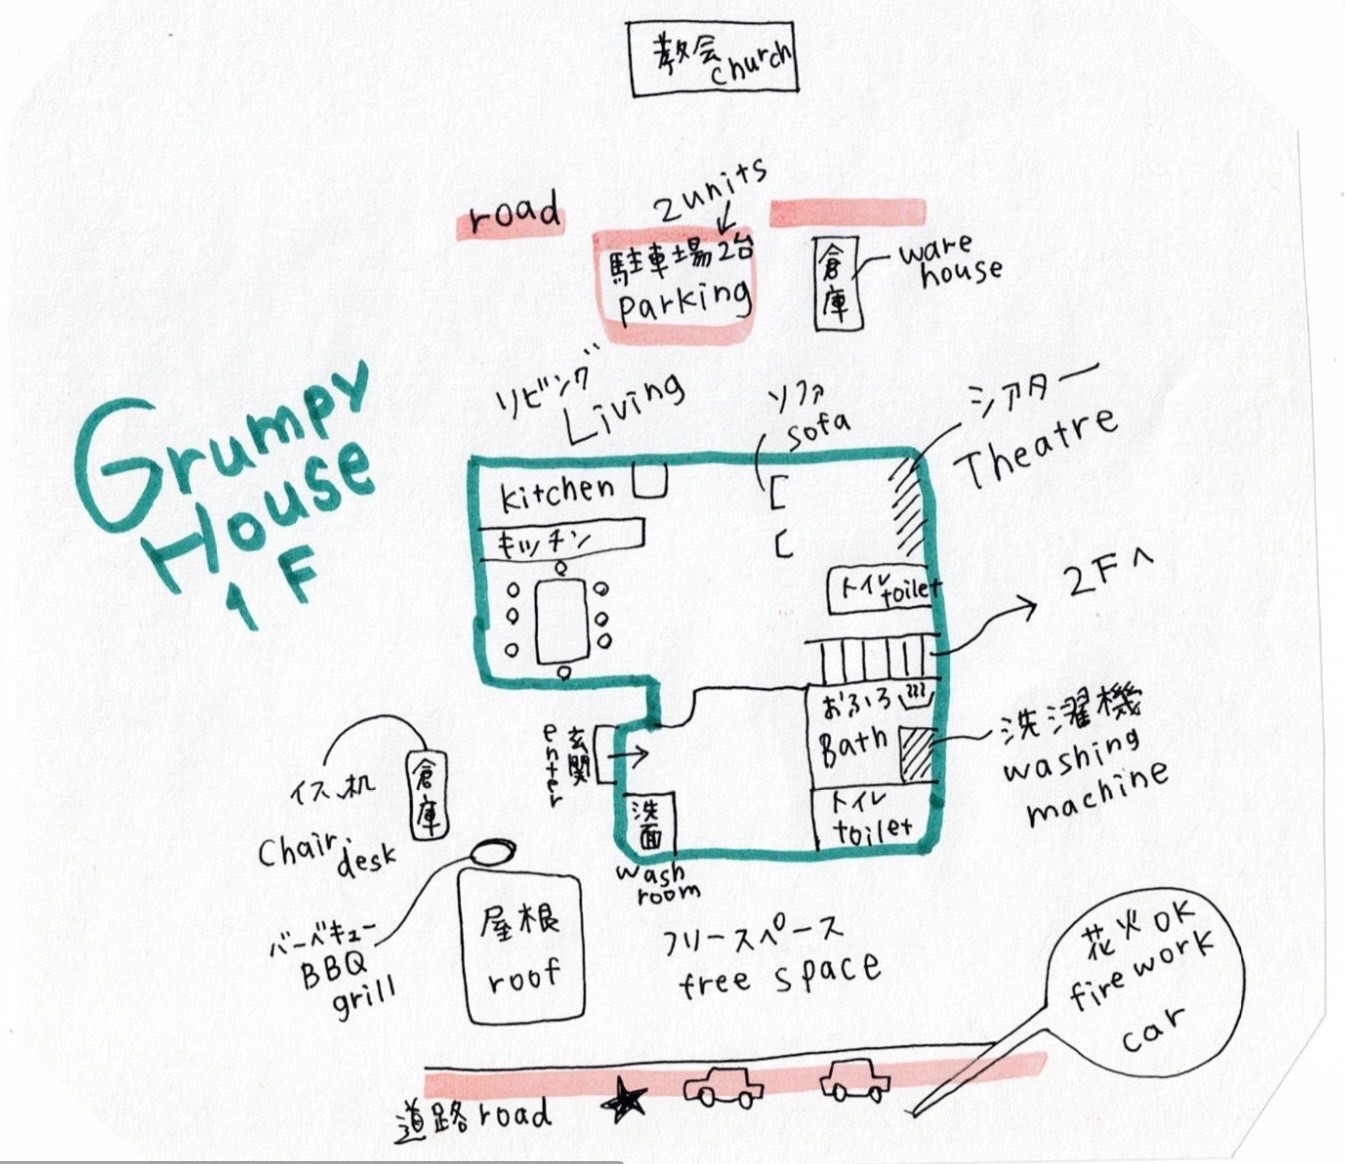 教会
church
road
2units
駐車場2台
parking
倉庫
ware
house
リビング
Living
ソファ
sofa
シアター
Theatre
Grumpy
House
1F
kitchen
キッチン
トイレ
toilet
2Fへ
おふろ
Bath
洗濯機
washing
machine
トイレ
toilet
玄関
enter
洗面
wash
room
倉庫
イス、机
Chair.
desk
バーベキュー
BBQ
grill
屋根
roof
フリースペース
free space
花火OK
firework
car
道路road